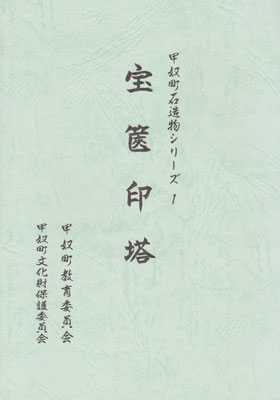 甲奴町石造物シリーズ 1
宝篋印塔
甲奴町教育委員会
甲奴町文化財保護委員会